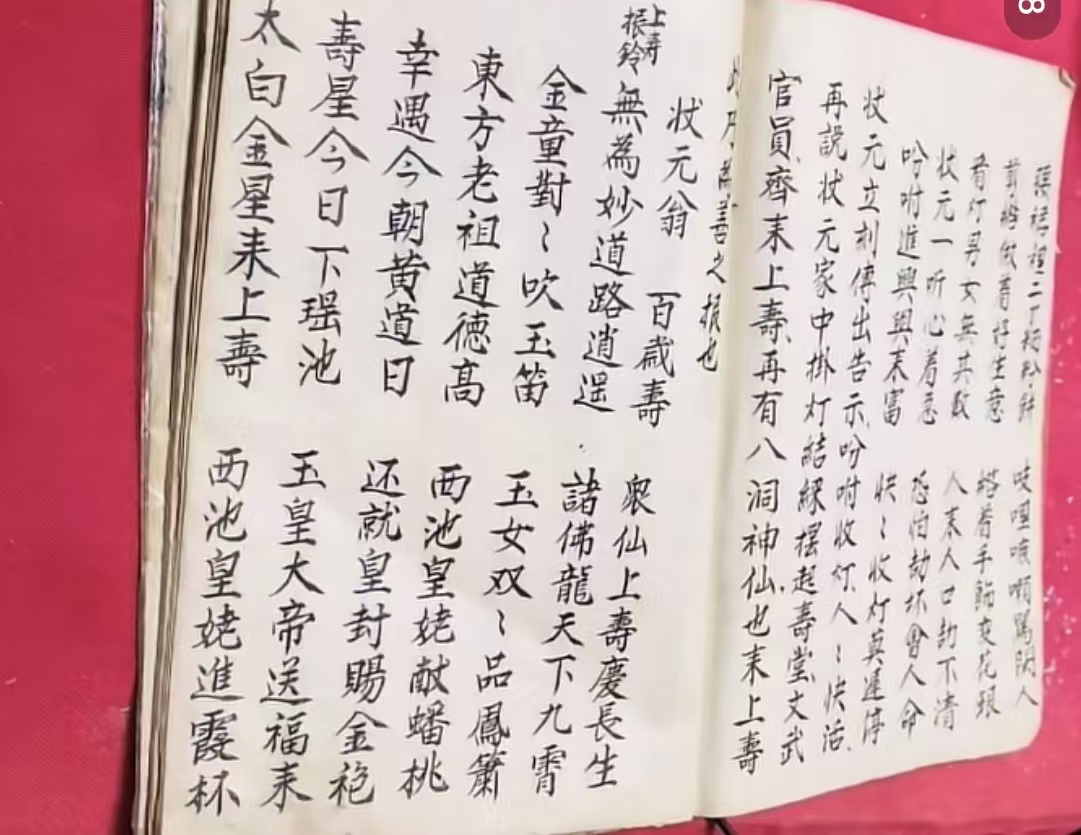 剪綹做着好生意 綹着手飾花銀
看灯男女無其數 人耒人口劫不清
状元一听心着急 恐怕劫坏會人命
吩咐進興興耒富 快〻收灯莫遲停
状元立刻傳出告示吩咐收灯人〻快活
再説状元家中掛灯結綵擺起壽堂文武
官員齊耒上壽再有八洞神仙也耒上壽
善之報也
状元翁 百歲壽 衆仙上壽慶長生
上壽
振鈴
無為妙道路逍遥 諸佛龍天下九霄
金童對〻吹玉笛 玉女双〻品鳳簫
東方老祖道德高 西池皇姥献蟠桃
幸遇今朝黄道日 还就皇封賜金袍
壽星今日下瑶池 玉皇大帝送福耒
太白金星耒上壽 西池皇姥進霞杯